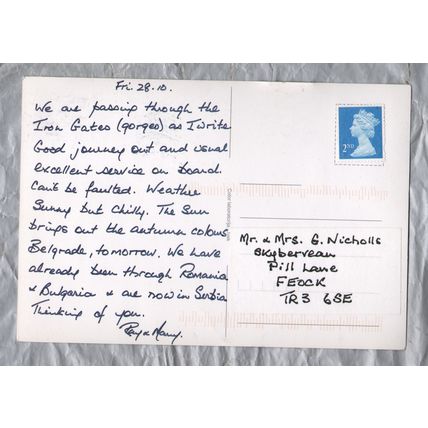 Fri. 28.10.
We are passing through the
Iron Gates (gorges) as I write
Good journey out and usual
excellent service on board.
Can't be faulted. Weather
Sunny but Chilly. The Sun
brings out the autumn colours
Belgrade, tomorrow. We have
already been through Romania
& Bulgaria & are now in Serbia
Thinking of you.
Ray & Mary.
2ND
Mr. & Mrs. G. Nicholls
Skyberveau
Pill Lane
FEOCK
TR3 6SE